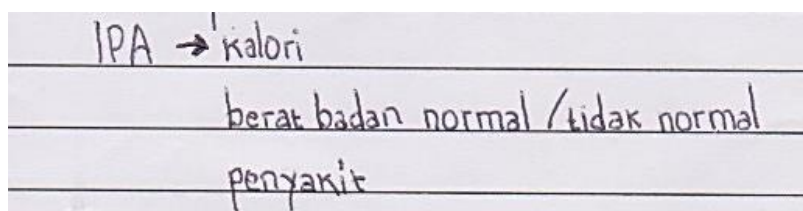 IPA → kalori
berat badan normal / tidak normal
penyakit